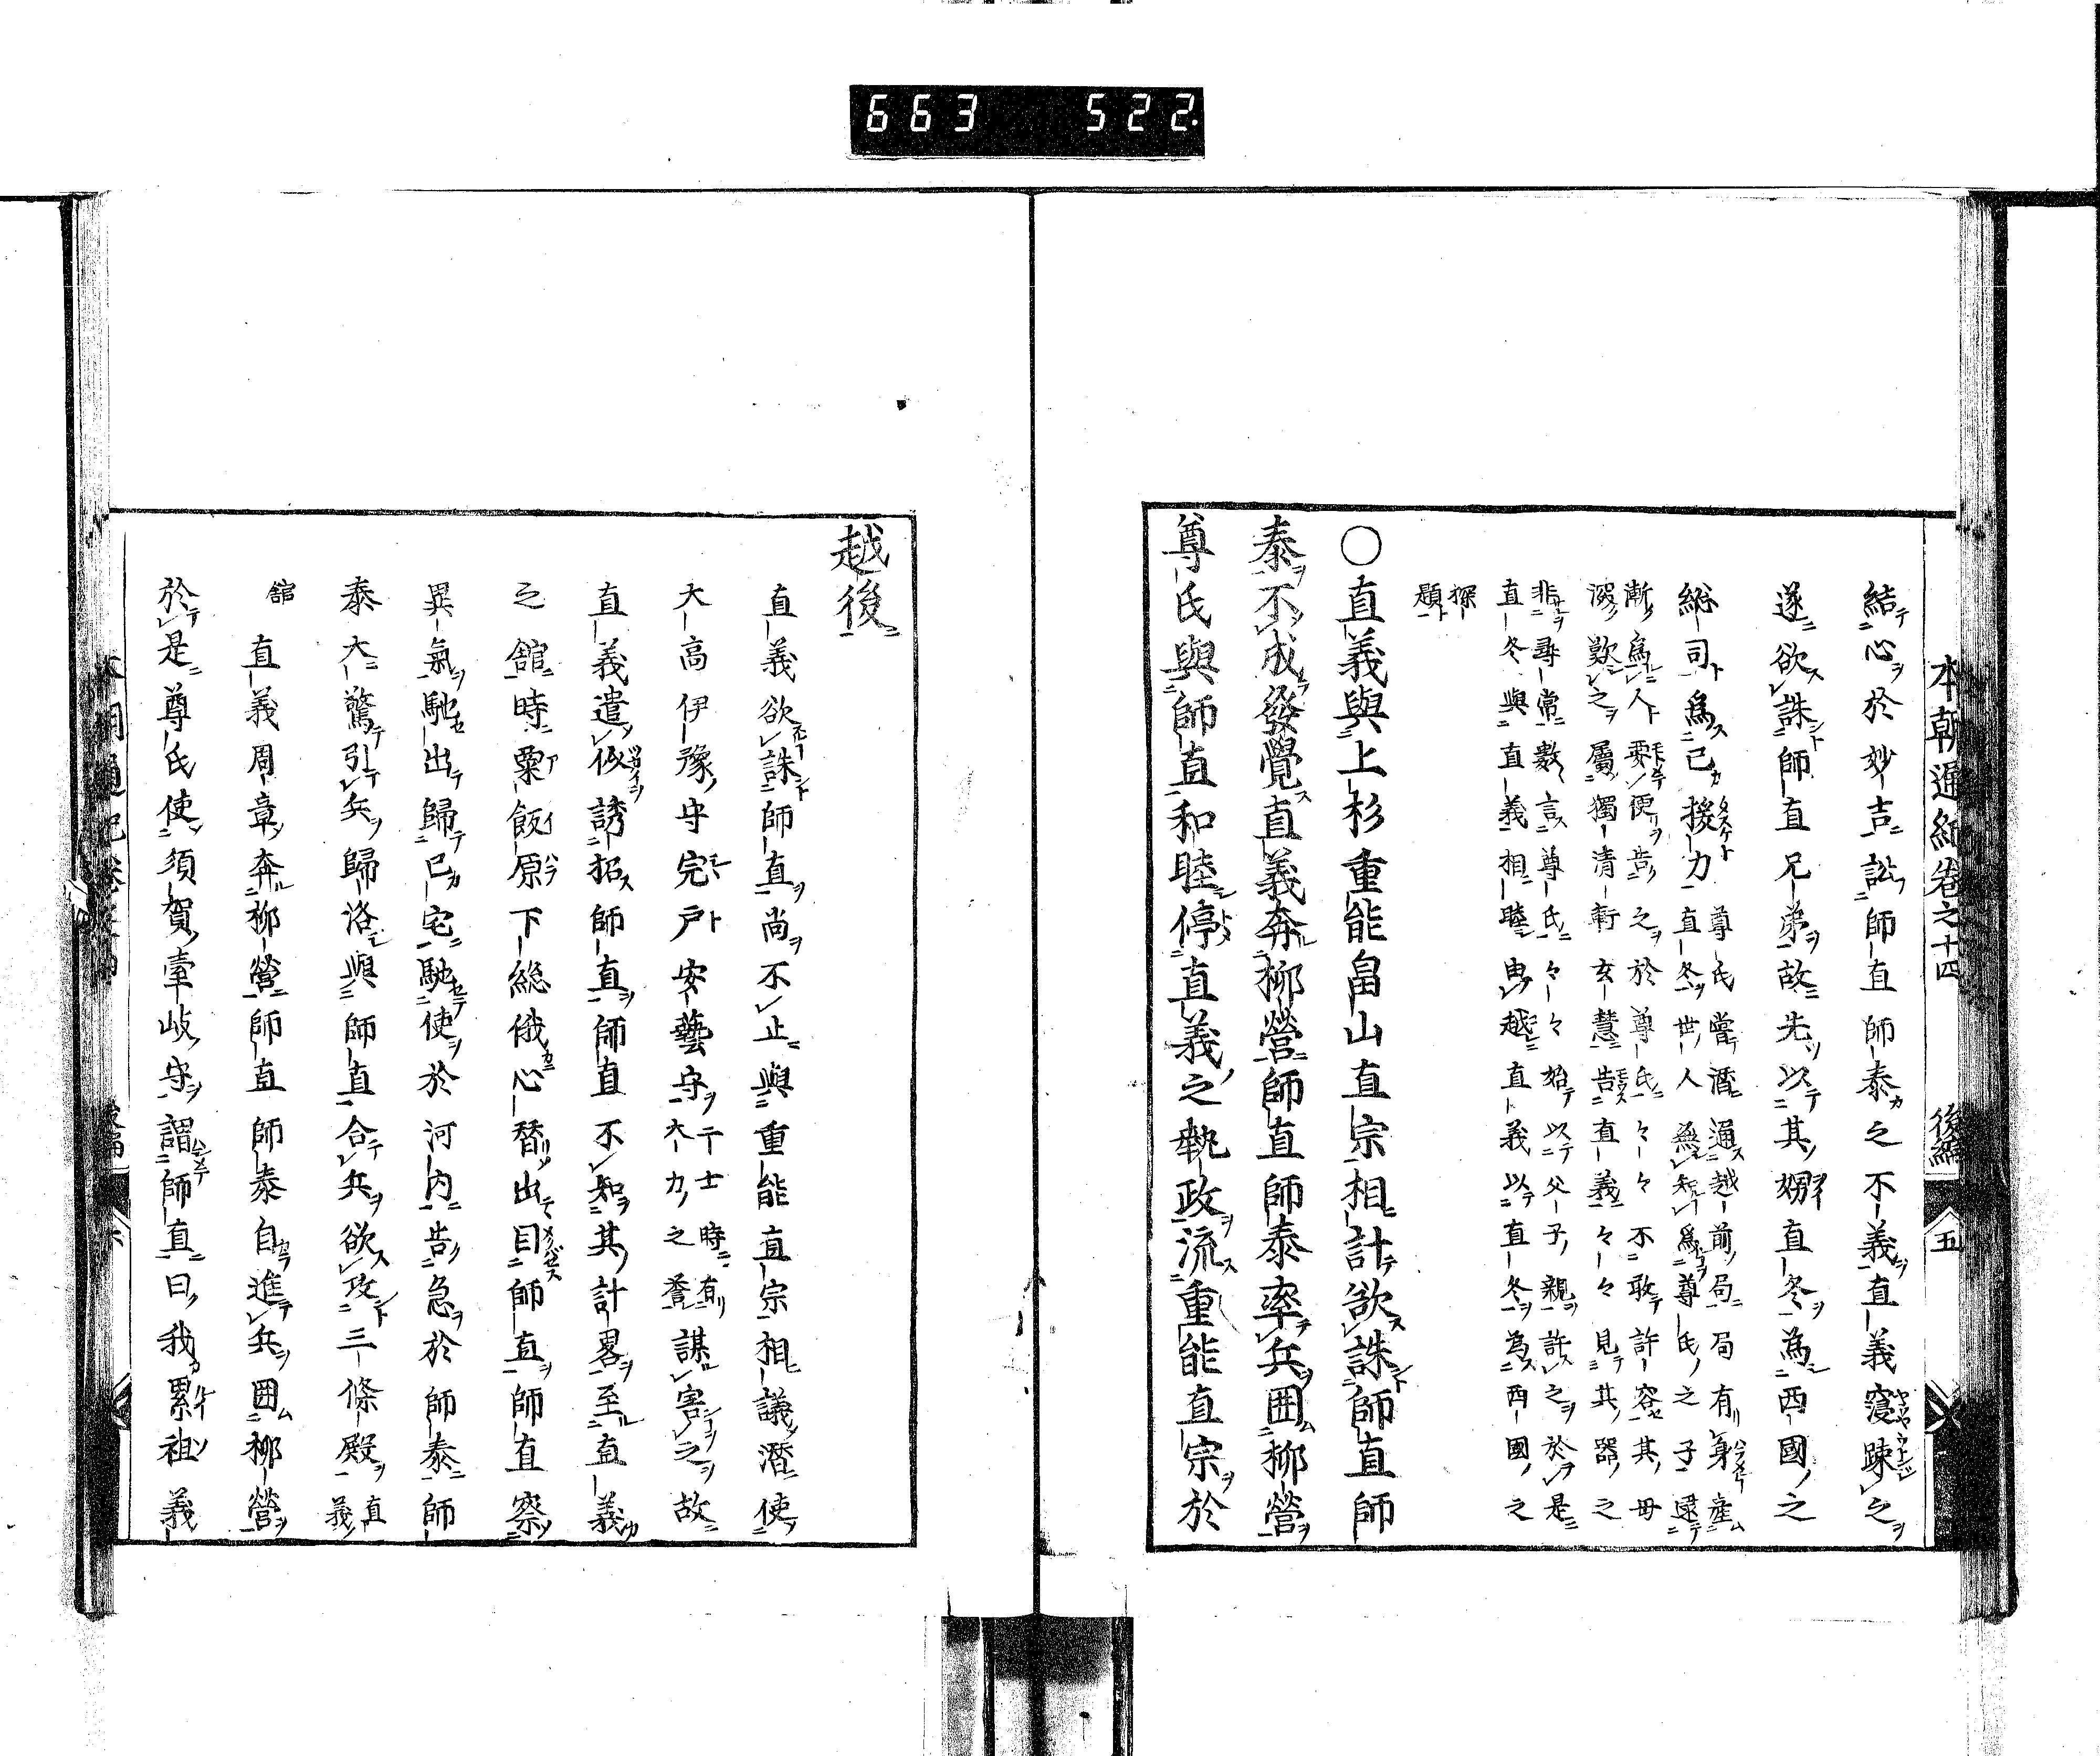 663 522.
本朝通紀卷之十四 後編 五
結心於妙吉訟師直師泰之不義直義寖踈之
遂欲誅師直兄弟故先以其甥直冬為西國之
総司為己援力
尊氏嘗潛通越前局局有身産
直冬世人無知為尊氏之子還
漸為人委便告之於尊氏々々不敢許容其母
深歎之屬獨清軒玄慧告直義々々見其器之
非尋常數言尊氏々々始以父子親許之於是
直冬與直義相睦甴越直義以直冬為西國之
探
題
〇直義與上杉重能畠山直宗相計欲誅師直師
泰不成發覺直義奔柳營師直師泰率兵囲柳營
尊氏與師直和睦停直義之執政流重能直宗於
越後
直義欲誅師直尚不止與重能直宗相議潛使
大高伊豫守完戸安藝守
二士時有
大力之誉
謀害之故
直義遣使誘招師直師直不知其計畧至直義
之舘時粟飯原下総俄心替出目師直師直察
異氣馳出歸己宅馳使於河内告急於師泰師
泰大驚引兵歸洛與師直合兵欲攻三條殿
直
義
舘
直義周章奔柳營師直師泰自進兵囲柳營
於是尊氏使須賀壹岐守謂師直曰我累祖義